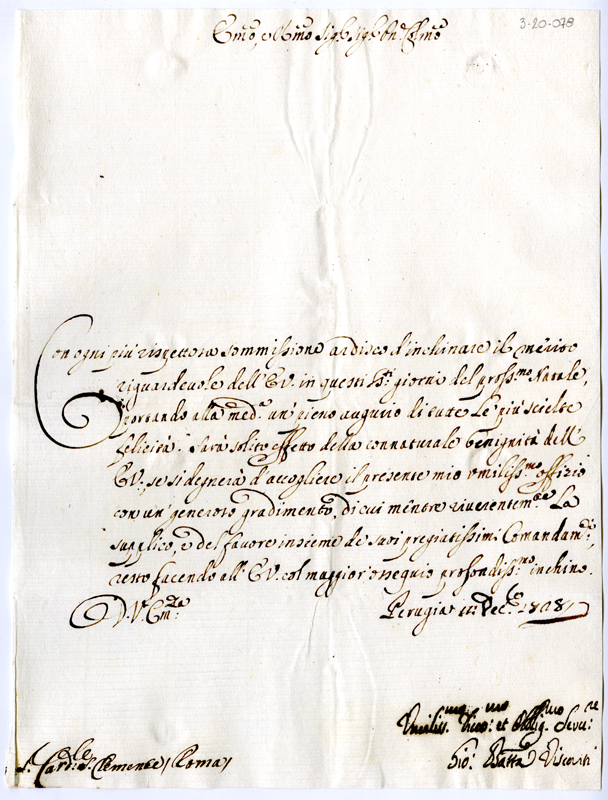 3-20-078
Emo, e Rmo Sigr Sigr Pn Colmo
Con ogni più rispettosa sommissione ardisco d'inchinare il merito
riguardevole dell'E.V. in questi Sti giorni del prossmo Natale,
portando alla medª un pieno augurio di tutte le più scielte
felicità. Sarà solito effetto della connaturale benignità dell'
E.V., se si degnerà d'accogliere il presente mio umilissmo offizio
con un generoso gradimento, di cui mentre riverentemte La
supplico, e del favore insieme de suoi pregiatissimi Comandamti,
resto facendo all'E.V. col maggior ossequio profondissmo inchino.
D. V. Emza
Perugia Xbre
Umilissmo et Obbligmo Servre
Gio: Batta Visconti
S. Cardle S. Clemente / Roma /